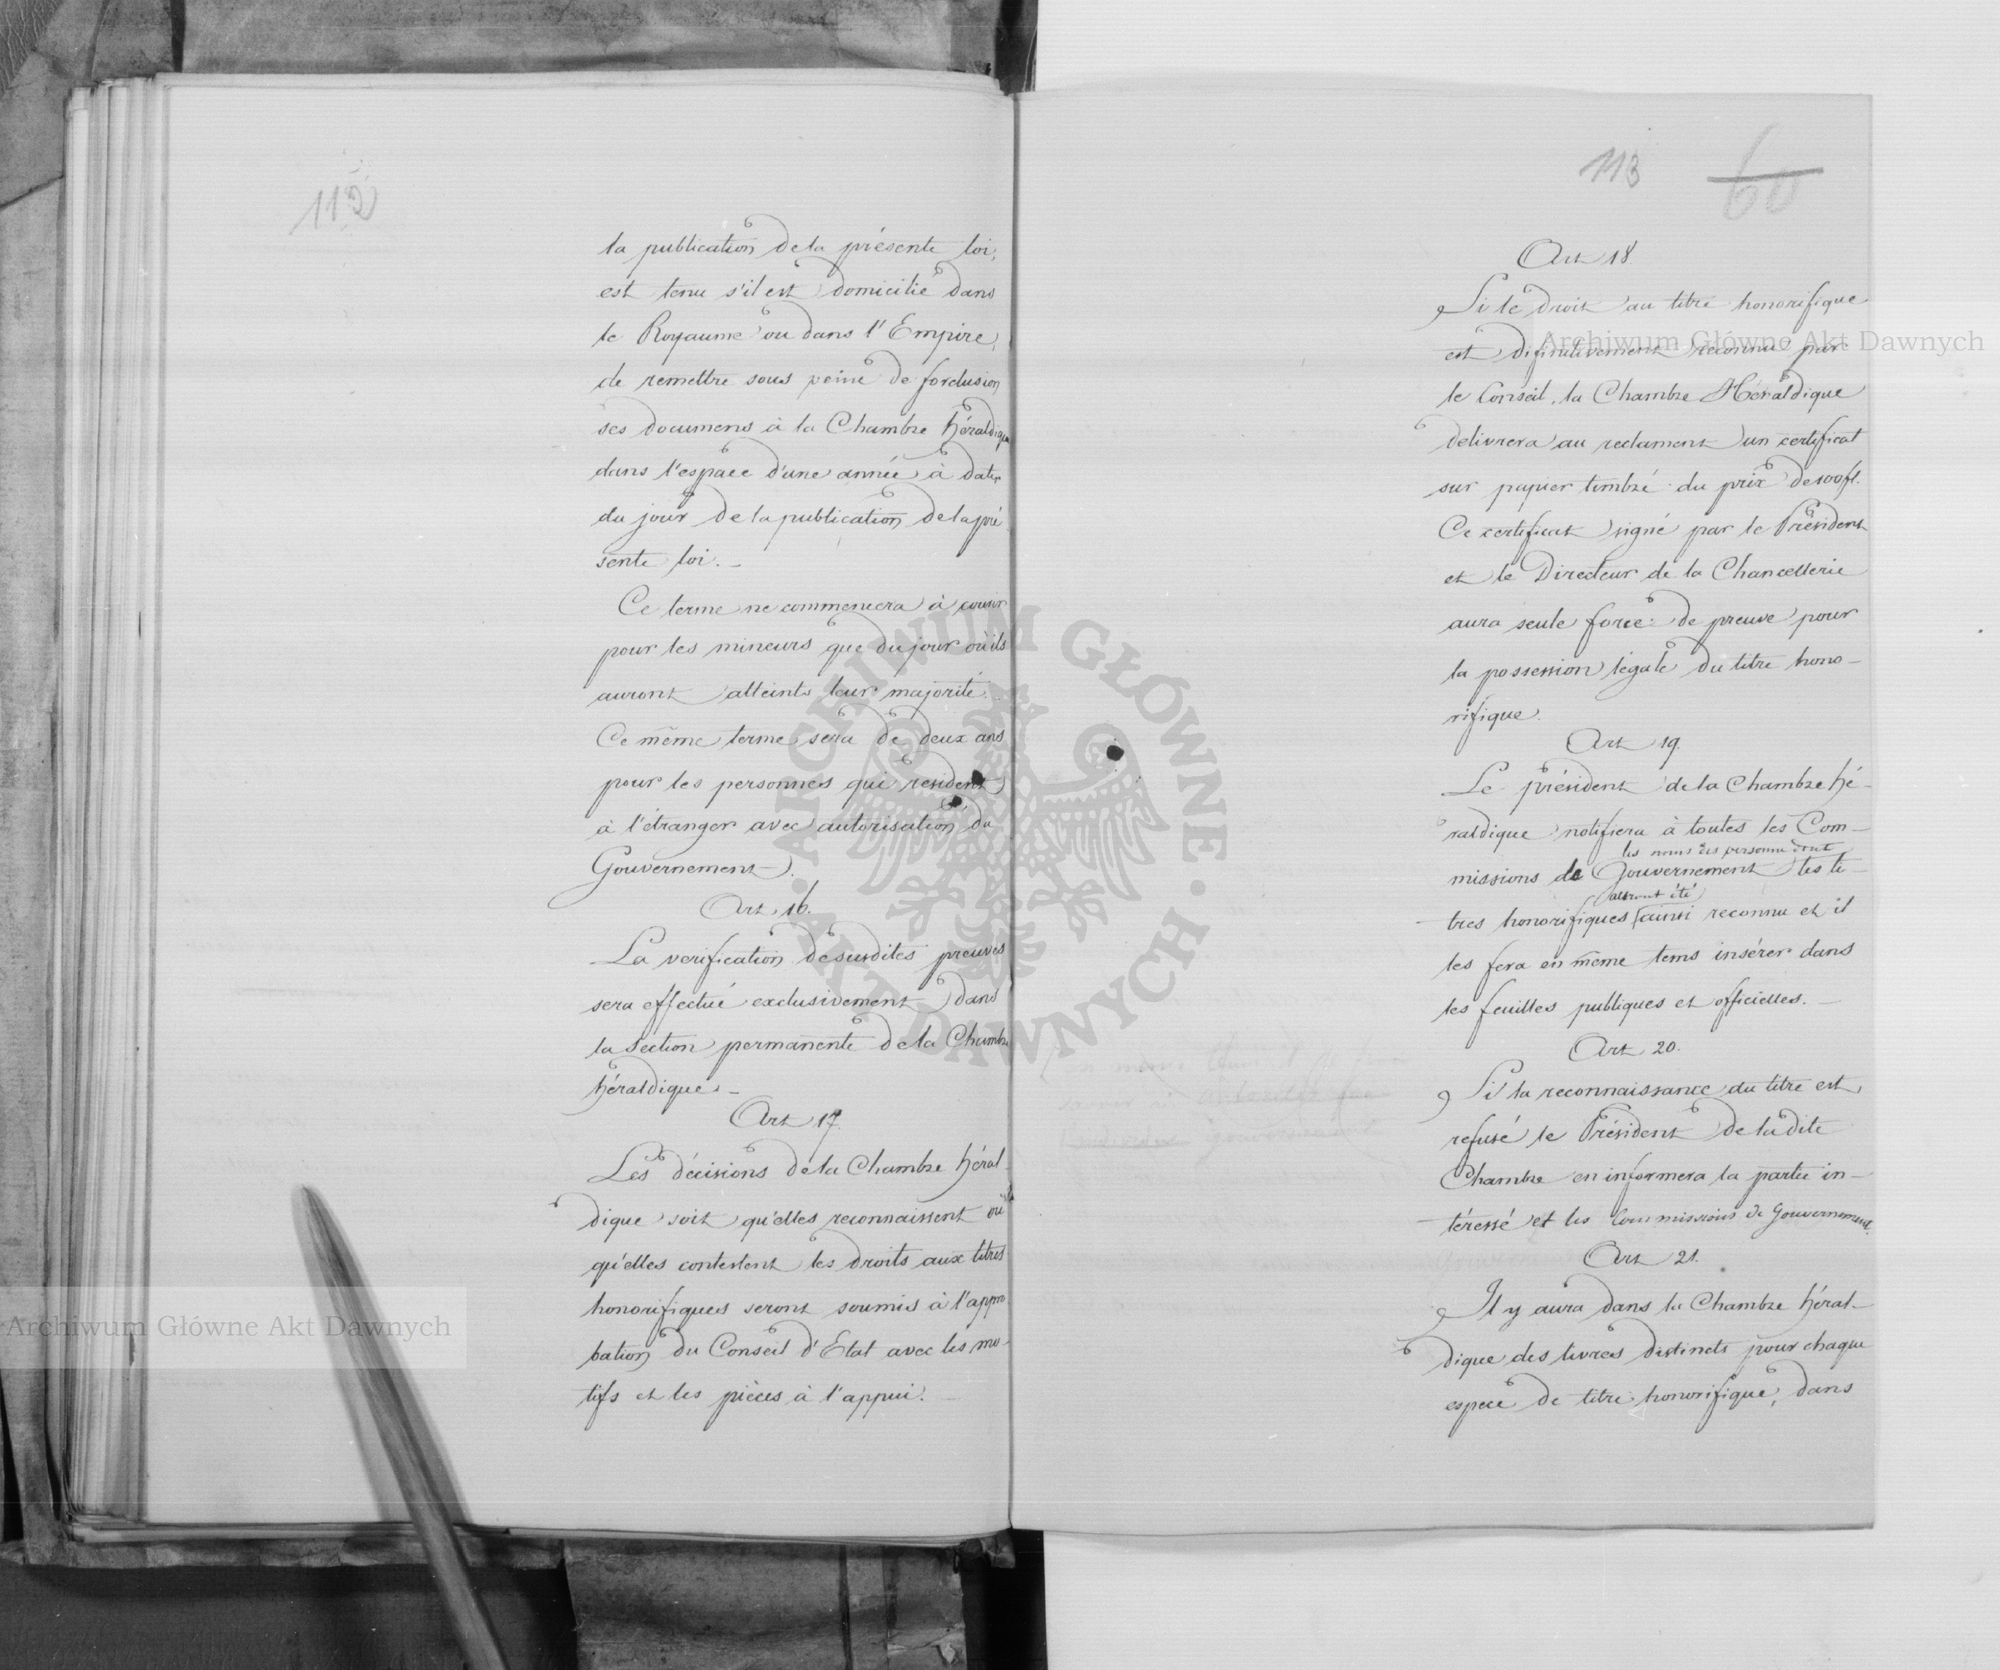 112
la publication de la présente loi,
est tenu s'il est domicilié dans
le Royaume ou dans l'Empire,
de remettre sous peine de forclusion
ses documens à la Chambre héraldique
dans l'espace d'une année à dater
du jour de la publication de la pré
sente loi. _
Ce terme ne commencera à courir
pour les mineurs que du jour où ils
auront atteints leur majorité.
Ce même terme sera de deux ans
pour les personnes qui resident
à l'étranger avec autorisation du
Gouvernement.
Art 16.
La verification desusdites preuves
sera effectué exclusivement dans
la Section permanente de la Chambre
héraldique. _
Art 17.
Les décisions de la Chambre héral
dique soit qu'elles reconnaissent ou
qu'elles contestent les droits aux titres
honorifiques seront soumis à l'appro
bation du Conseil d'Etat avec les mo
tifs et les pièces à l'appui. _
113 60
Art 18.
Si le droit au titre honorifique
est difinitivement reconnu par
le Conseil, la Chambre Héraldique
delivrera au reclament un certificat
sur papier timbré du prix de 100 fl.
Ce certificat signé par le Président
et le Directeur de la Chancellerie
aura seule force de preuve pour
la possession légale du titre hono-
rifique.
Art 19.
Le président de la Chambre hé-
raldique notifiera à toutes les Com-
les noms des personnes dont
missions de Gouvernement les ti-
auront été
tres honorifiques ainsi reconnu et il
les fera en même tems insérer dans
les feuilles publiques et officielles. _
Art 20.
Si la reconnaissance du titre est
refusé le Président de la dite
Chambre en informera la partie in-
téressé et les Commissions de Gouvernement.
Art 21.
Il y aura dans la Chambre héral-
dique des livres distincts pour chaque
espece de titre honorifique, dans
Archiwum Główne Akt Dawnych
Archiwum Główne Akt Dawnych
ARCHIWUM GŁÓWNE · AKT DAWNYCH ·